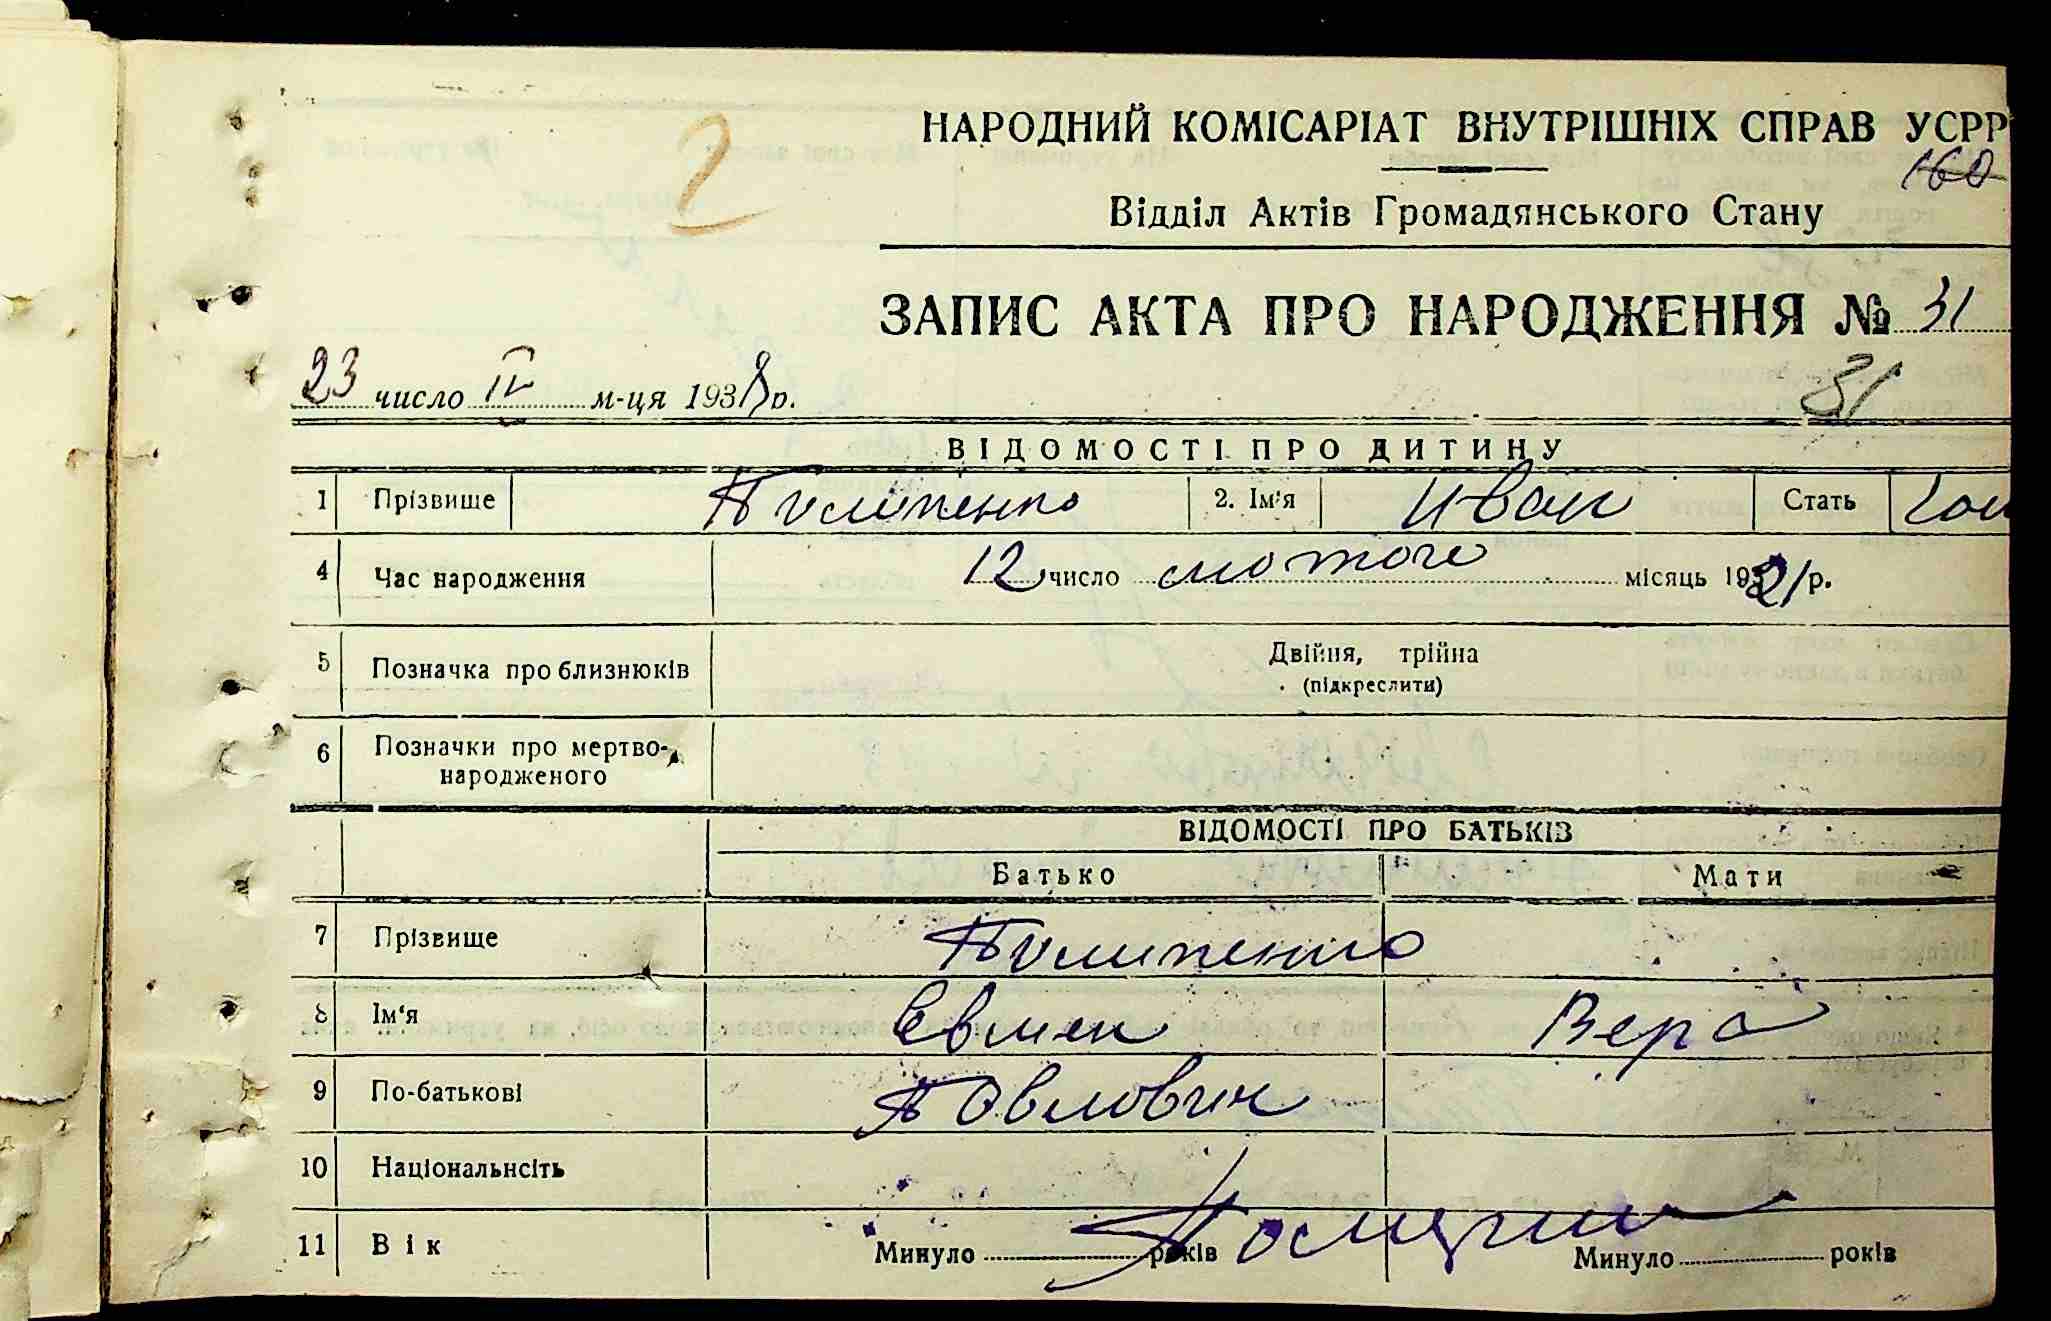 2
НАРОДНИЙ КОМІСАРІАТ ВНУТРІШНІХ СПРАВ УСРР
160
Відділ Актів Громадянського Стану
ЗАПИС АКТА ПРО НАРОДЖЕННЯ № 31
23 число IV м-ця 1938 р.
31
ВІДОМОСТІ ПРО ДИТИНУ
1 Прізвище Пилипенко 2. Ім'я Иван Стать
4 Час народження 12 число лютого місяць 1921 р.
5 Позначка про близнюків Двійня, трійна
(підкреслити)
6 Позначки про мертво-
народженого
ВІДОМОСТІ ПРО БАТЬКІВ
Батько Мати
7 Прізвище Пилипенко
8 Ім'я Євмен Вера
9 По-батькові Павлович
10 Національнсіть
11 Вік Минуло років Минуло років